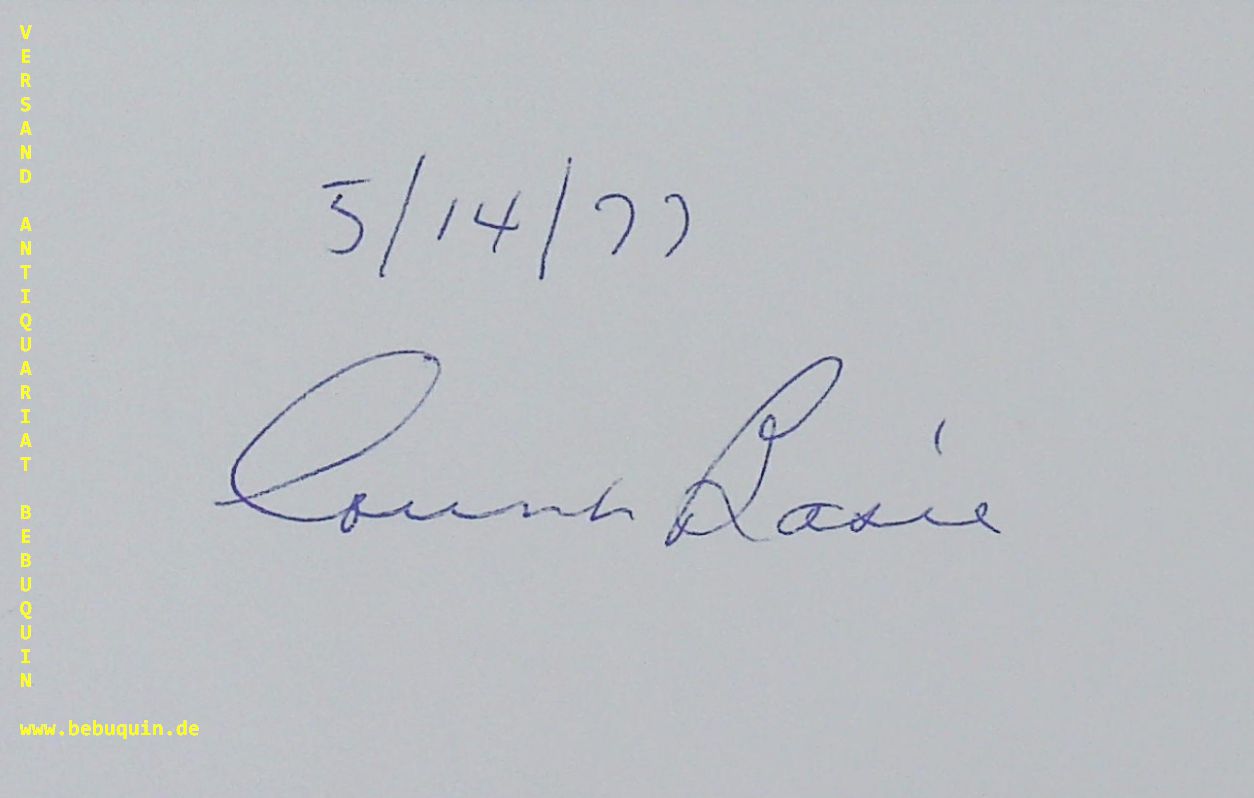 VERSAND ANTIQUARIAT BEBUQUIN
www.bebuquin.de
5/14/77
Count Basie